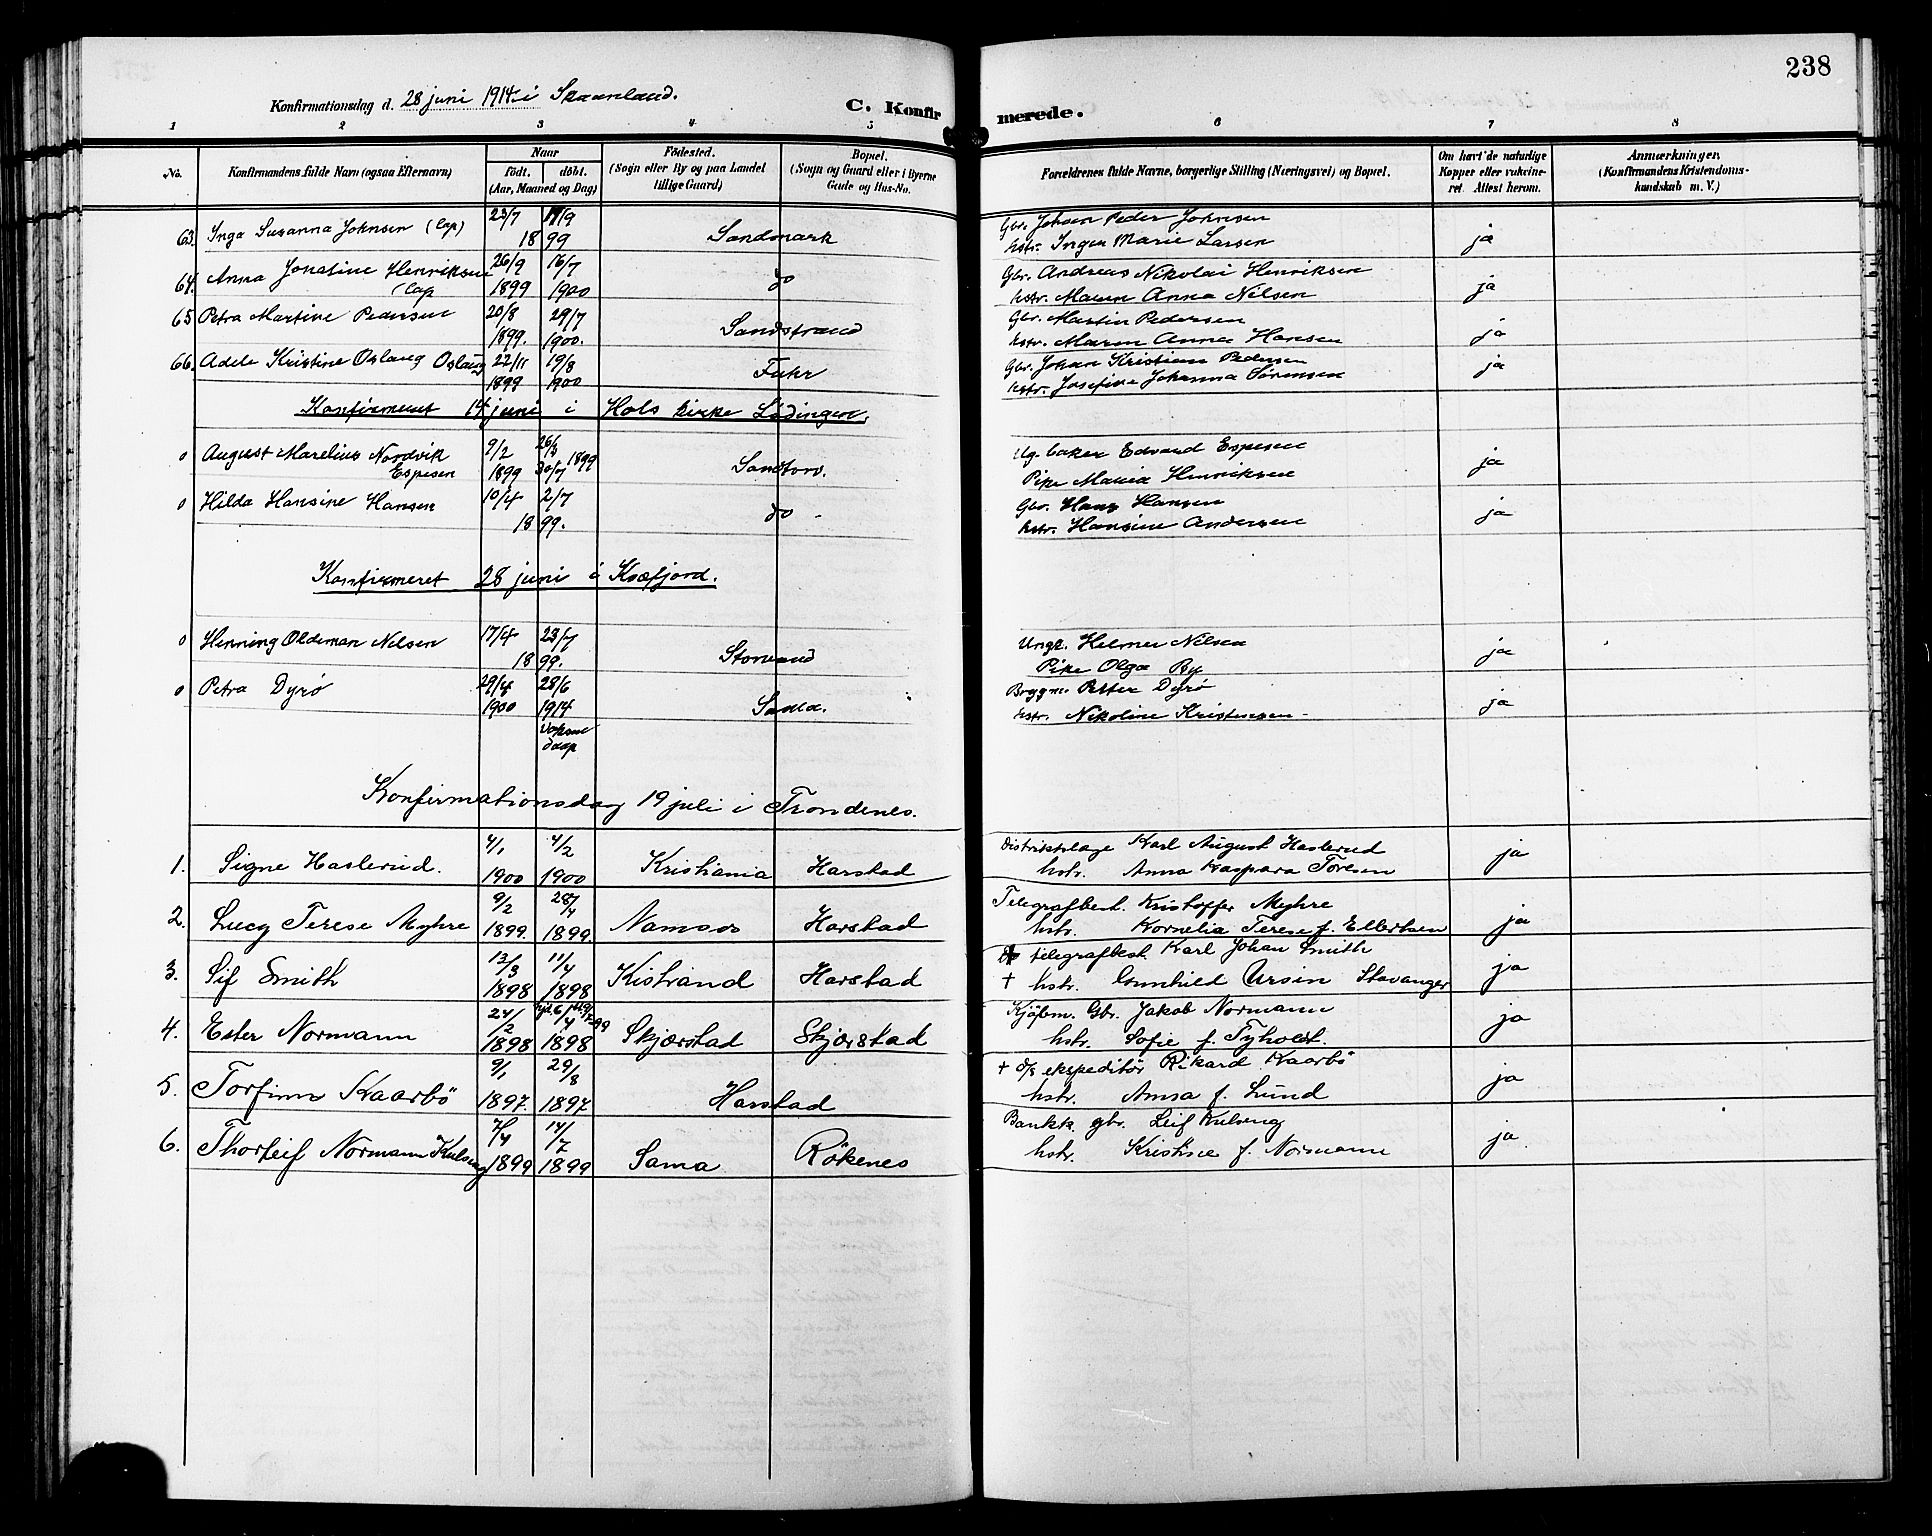 238
Konfirmationsdag d. 28 juni 1914 i Skaanland.
C. Konfirmerede.
1 2 3 4 5 6 7 8
No.
Konfirmandens fulde Navn (ogsaa Efternavn)
Naar
födt. döbt.
(Aar, Maaned og Dag)
Födested.
(Sogn eller By og paa Landet
tillige Gaard)
Bopæl.
(Sogn og Gaard eller i Byerne
Gade og Hus-No.
Forældrenes fulde Navne, borgerlige Stilling (Næringsvei) og Bopæl.
Om havt de naturlige
Kopper eller vakcine-
ret. Attest herom.
Anmærkninger.
(Konfirmandens Kristendoms-
kundskab m. V.)
63. Inga Susanna Johnsen (Lap) 23/7 17/9 1899 Sandmark Gbr. Johan Peder Johnsen ja
hstr. Inger Marie Larsen
64. Anna Jonatine Henriksen (Lap 26/9 1899 16/7 1900 do Gbr. Andreas Nikolai Henriksen ja
hstr. Maren Anna Nilsen
65 Petra Martine Pedersen 20/8 1899. 29/7 1900. Sandstrand Gbr. Martin Pedersen ja
hstr. Maren Anna Hansen
66. Adele Kristine Oslaug Oslaug 22/11 1899 19/8 1900 Gbr. Johan Kristian Pedersen ja
hstr. Josefine Johanna Sørensen
Konfirmeret 14 juni i Hols kirke Lødingen.
0 August Marelius Nordvik Espesen 9/2 1899 30/7 1899 Sandtorv. Ug. baker Edvard Espesen ja
Pike Maria Henriksen
0 Hilda Hansine Hansen 10/4 2/7 1899. do - Gbr. Hans Hansen ja
hstr. Hansine Andersen
Konfirmeret 28 juni i Kvæfjord.
0 Henning Oldeman Nilsen 17/4 23/7 1899. Storvand Ungk. Helmer Nilsen ja
Pike Olga By
0 Petra Dyrø 29/4 1900 28/6 1914 Voksendaap Sama. Petter Dyrø ja
hstr. Nikoline Kristensen -
Konfirmationsdag 19 juli i Trondenes.
1. Signe Haslerud. 4/1 1900 4/2 1900 Kristiania Harstad Distriktslæge Karl August Haslerud ja
hstr. Anna Kaspara Toresen
2. Lucy Terese Myhre 9/2 1899. 28/4 1899. Namsos Harstad Telegrafbest. Kristoffer Myhre ja
hstr. Kornelia Terese f. Ellertsen
3. Sif Smith 13/3 1898 11/4 1898 Kistrand Harstad telegrafbest. Karl Johan Smith ja
+ hstr. Gunhild Ursin Stavanger
4. Ester Normann 24/2 1898 6/4 1898 Skjærstad Skjærstad Kjøbm. Gbr. Jakob Normann ja
hstr. Sofie f. Tyholdt.
5. Torfinn Kaarbö 9/1 1897. 29/8 1897 Harstad + d/s ekspeditör Rikard Kaarbö ja
hstr. Anna f. Lund
6. Thorleif Normann Kulseng 1899 1899 Sama Rökenes Bankk. gbr. Leif Kulseng ja
hstr. Kristine f. Normann